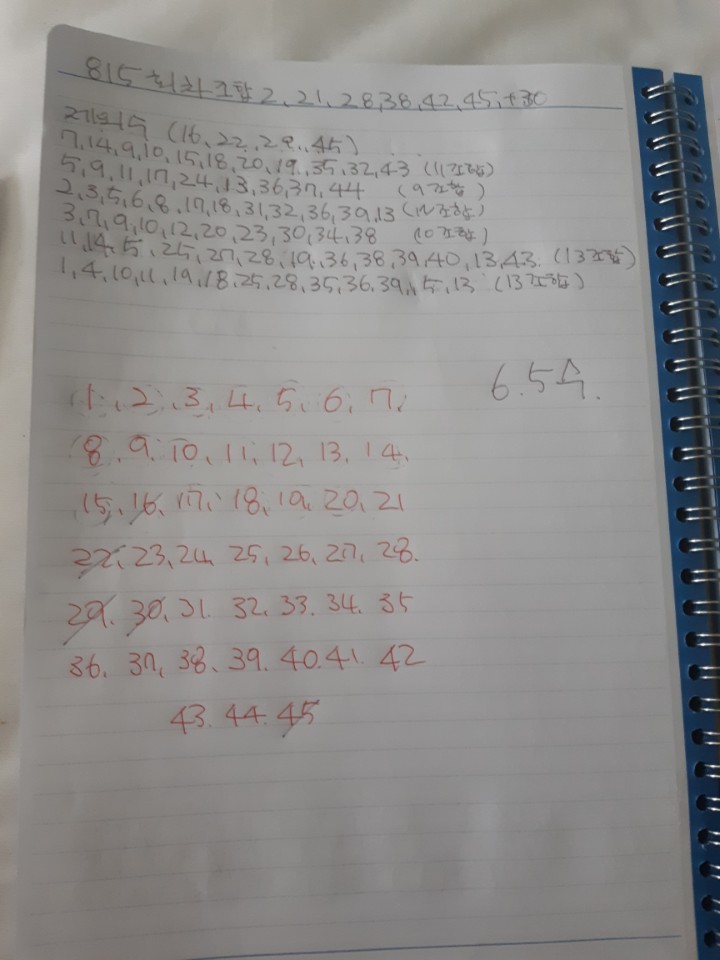 815회차조합 2, 21, 28, 38, 42, 45, +30
제외수 (16, 22, 29, 45)
7, 14, 9, 10, 15, 18, 20, 19, 35, 32, 43 (11조합)
5, 9, 11, 17, 24, 13, 36, 37, 44 (9조합)
2, 3, 5, 6, 8, 17, 18, 31, 32, 36, 39, 13 (12조합)
3, 7, 9, 10, 12, 20, 23, 30, 34, 38 (10조합)
11, 14, 5, 25, 27, 28, 19, 36, 38, 39, 40, 13, 43. (13조합)
1, 4, 10, 11, 19, 18, 25, 28, 35, 36, 39, 15, 13 (13조합)
6.5수.
1, 2, 3, 4, 5, 6, 7,
8, 9, 10, 11, 12, 13, 14.
15, 16, 17, 18, 19, 20, 21
22, 23, 24, 25, 26, 27, 28.
29. 30. 31. 32. 33. 34. 35
36. 37, 38, 39. 40. 41. 42
43. 44. 45